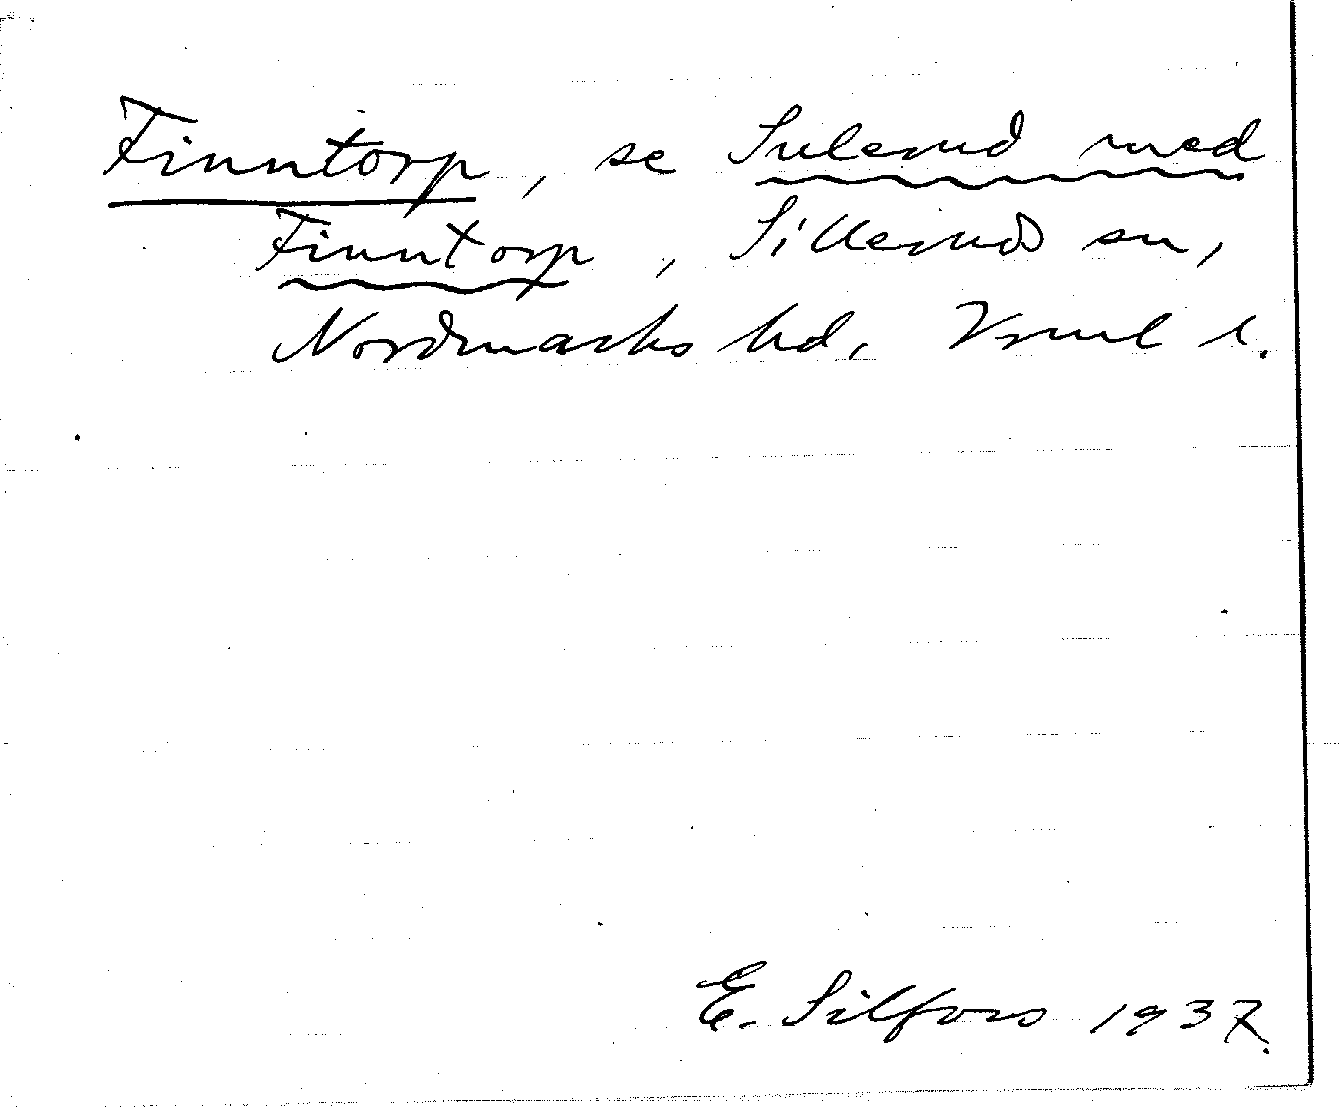 Finntorp, se Sulerud med
Finntorp, Silleruds sn,
Nordmarks hd, Vrml l.
E. Silfors 1937.